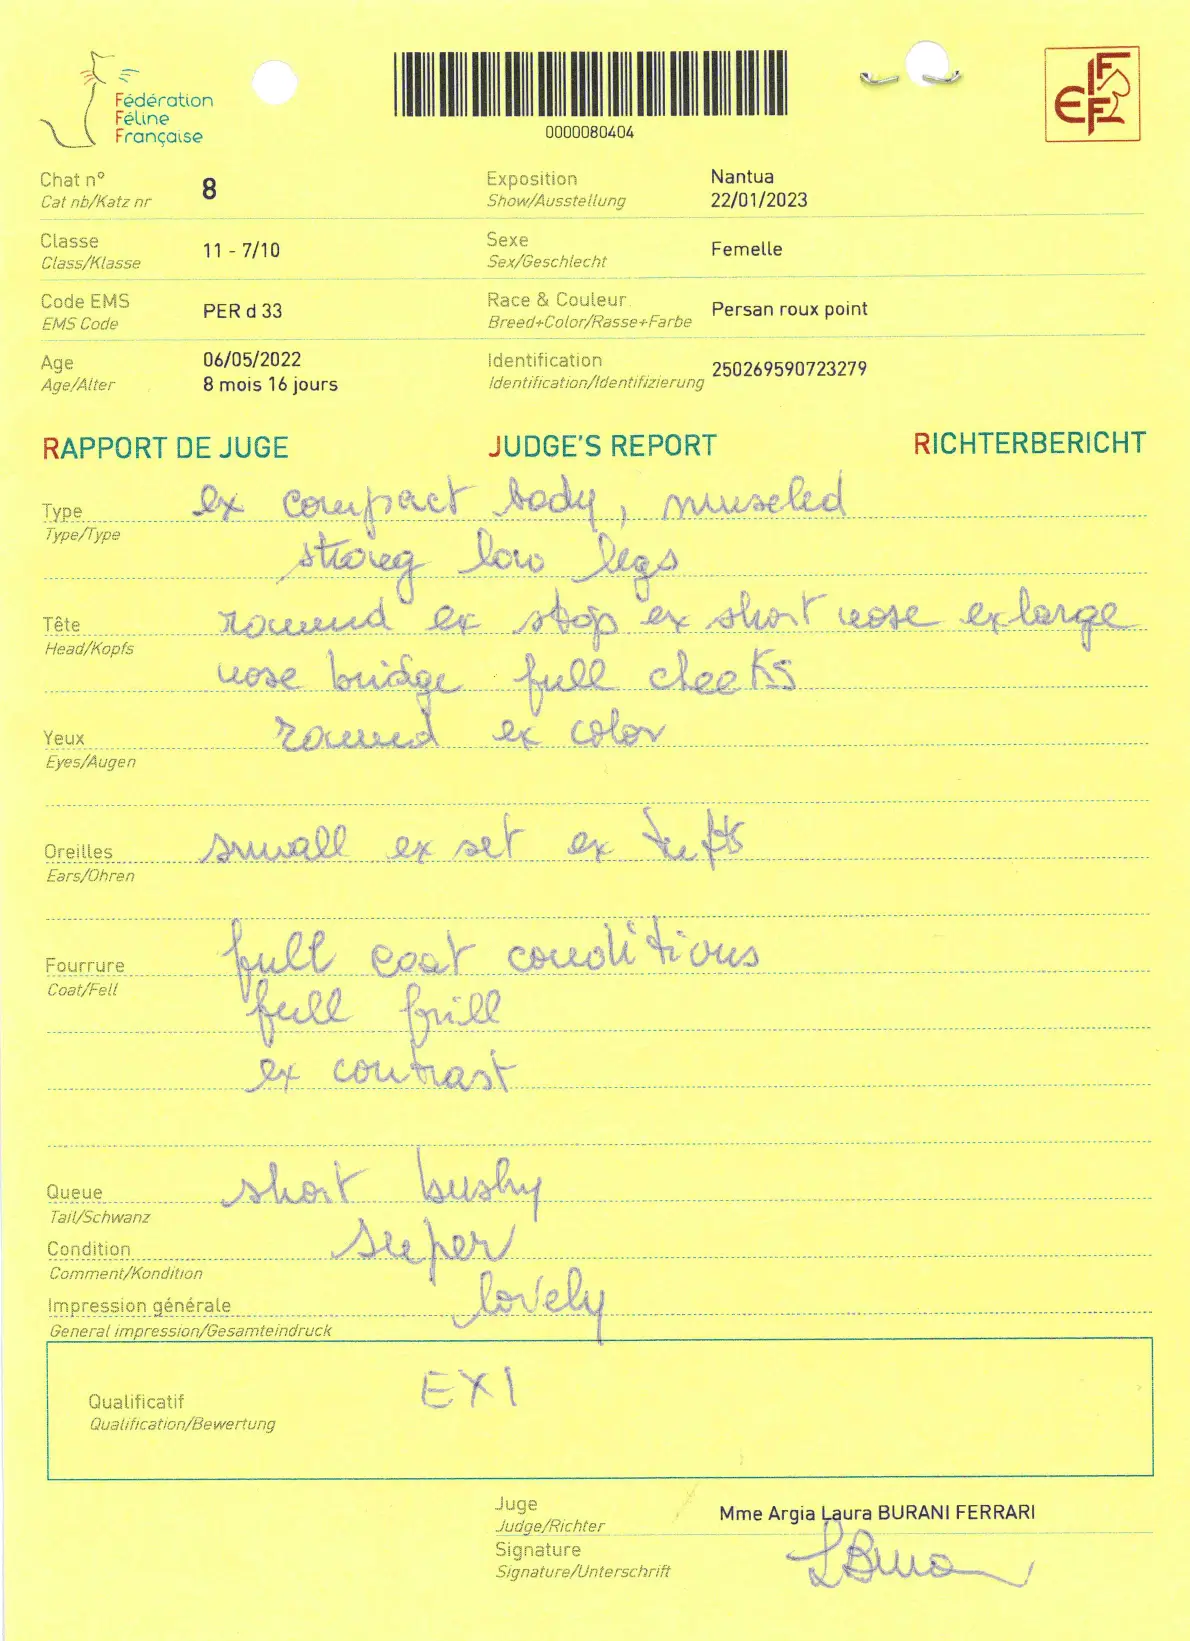 Fédération
Féline
Française
0000080404
FIFe
Chat n° 8 Exposition Nantua
Cat nb/Katz nr Show/Ausstellung 22/01/2023
Classe 11 - 7/10 Sexe Femelle
Class/Klasse Sex/Geschlecht
Code EMS PER d 33 Race & Couleur Persan roux point
EMS Code Breed+Color/Rasse+Farbe
Age 06/05/2022 Identification 250269590723279
Age/Alter 8 mois 16 jours Identification/Identifizierung
RAPPORT DE JUGE JUDGE'S REPORT RICHTERBERICHT
Type ex compact body, muscled
Type/Type strong low legs
Tête round ex stop ex short nose ex large
Head/Kopfs nose bridge full cheeks
Yeux round ex color
Eyes/Augen
Oreilles small ex set ex tufts
Ears/Ohren
Fourrure full coat conditions
Coat/Fell full frill
ex contrast
Queue short bushy
Tail/Schwanz
Condition super
Comment/Kondition
Impression générale lovely
General impression/Gesamteindruck
Qualificatif EX1
Qualification/Bewertung
Juge Mme Argia Laura BURANI FERRARI
Judge/Richter
Signature
Signature/Unterschrift